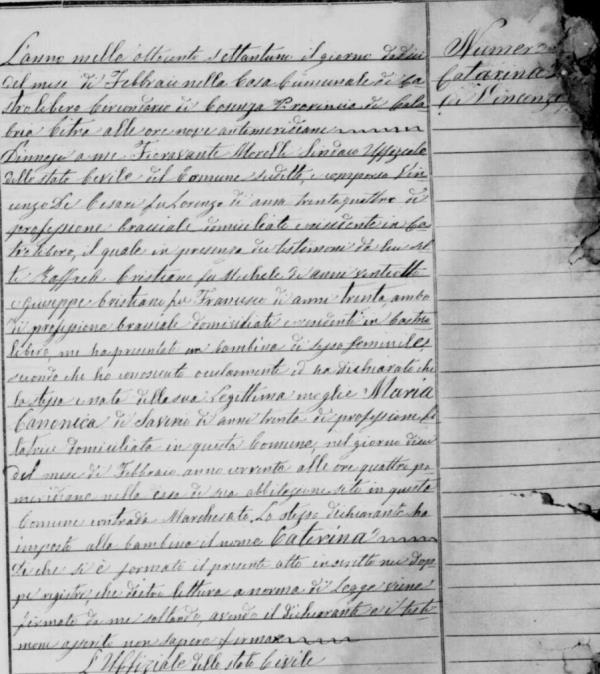 L'anno mille ottocento settantuno il giorno dodici
del mese di Febbraio nella Casa Comunale di Ca
strolibero Circondario di Cosenza Provincia di Cala
bria Citra alle ore nove antimeridiane
Dinnezi a me Fioravante Morelli Sindaco Uffiziale
dello stato Civile del Comune sudetto, è comparso Vin
cenzo De Cesari fu Lorenzo di anni trentaquattro di
professione bracciale domiciliato e residente in Ca
strolibero, il quale in presenza dei testimoni da lui
Raffaele Cristiano fu Michele di anni ventotto
e Giuseppe Cristiano fu Francesco di anni trenta, ambo
di professione bracciale domiciliati e residenti in Castro
libero, me ha presentat una bambina di sesso feminile
secondo che ho conosciuto oculamente ed ha dichiarato che
la stessa è nata dalla sua Legittima moglie Maria
Canonica di Saverio di anni trenta di professione fi
latrice domiciliata in questa Comune, nel giorno dieci
del mese di Febbraio anno corrente alle ore quattro po
meridiane nella casa di sua abbitazione sita in questo
Comune contrada Marchesato. Lo stesso dichiarante ha
imposto alla bambina il nome Caterina
Di che si è formato il presente atto inscritto nei dop
pi registri, che dietro lettura a norma di Legge viene
firmato da me soltando, avendo il dichiarante e i testi
moni asserito non sapere firmare
L'Uffiziale dello stato Civile
Numer
Catarina
di Vincenzo